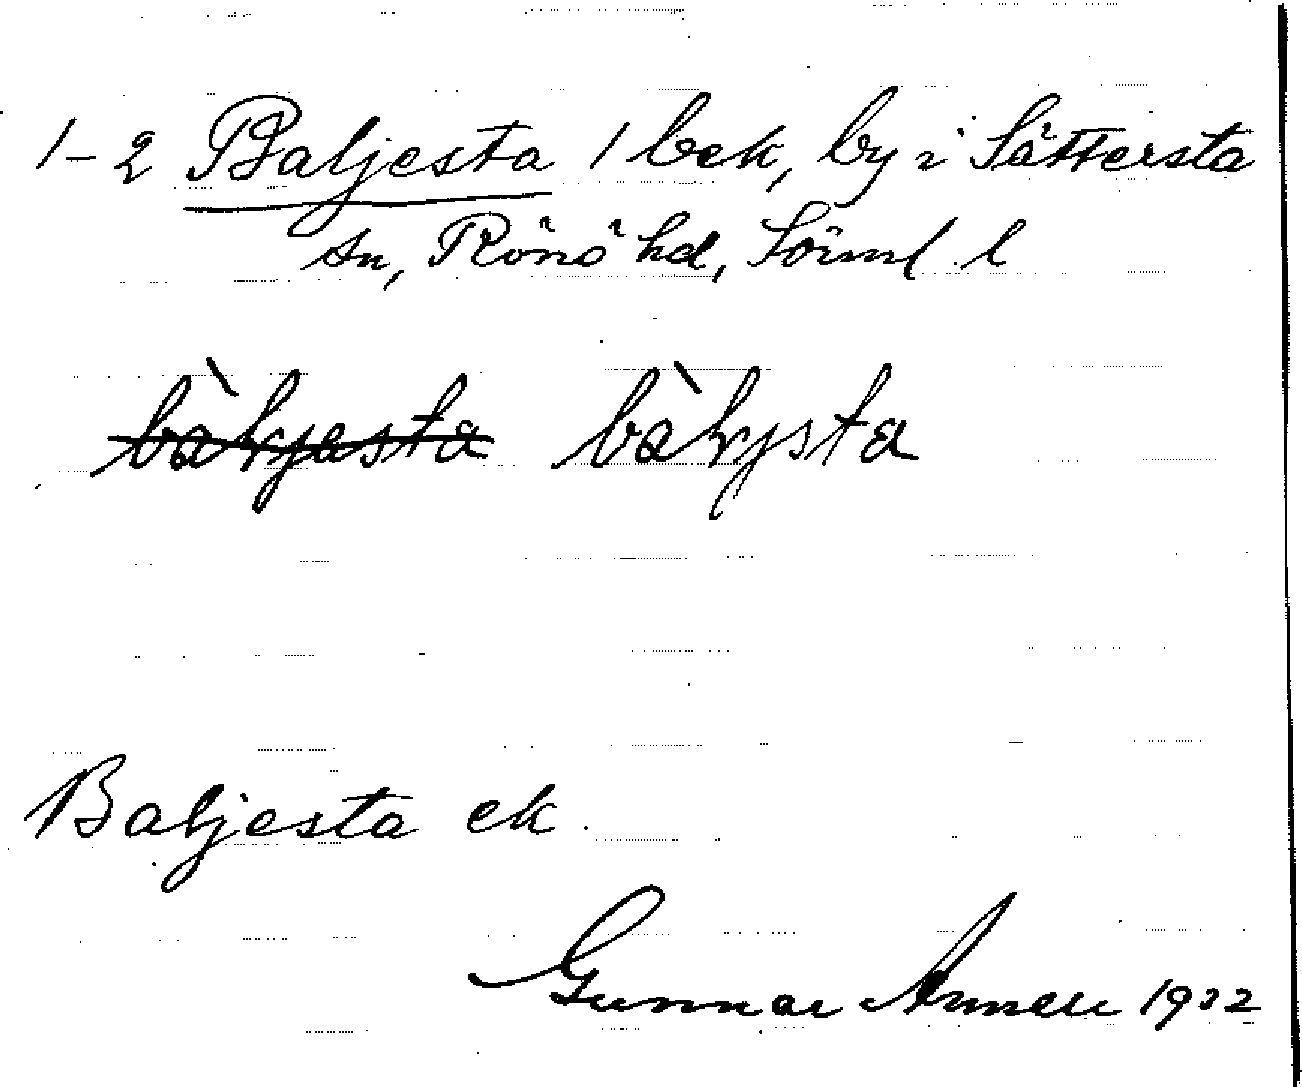 1-2 Baljesta 1 bek, by i Sättersta
sn, Rönö hd, Söiml l
bàlyesta bàlysta
Baljesta ek.
Gunnar 1932